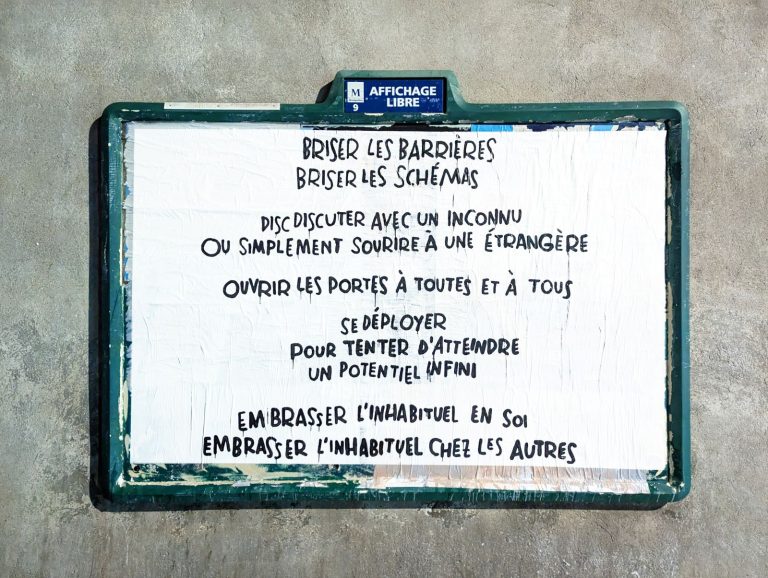 M
9
AFFICHAGE
LIBRE
BRISER LES BARRIÈRES
BRISER LES SCHÉMAS
DISC DISCUTER AVEC UN INCONNU
OU SIMPLEMENT SOURIRE À UNE ÉTRANGÈRE
OUVRIR LES PORTES À TOUTES ET À TOUS
SE DÉPLOYER
POUR TENTER D'ATTEINDRE
UN POTENTIEL INFINI
EMBRASSER L'INHABITUEL EN SOI
EMBRASSER L'INHABITUEL CHEZ LES AUTRES